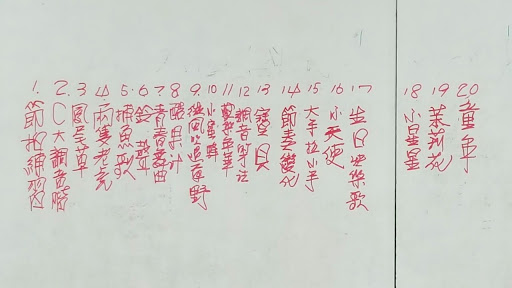 1. 節拍練習
2. C大調音階
3. 鳳尾草
4. 兩隻老虎
5. 捕魚歌
6. 鈴聲
7. 青春舞曲
8. 醜
9. 微風吹過原野
10. 小蜜蜂
11.
12. 調音手法
13. 寶貝
14. 節奏變化
15. 大手拉小手
16. 小天使
17. 生日快樂歌
18. 小星星
19. 茉莉花
20. 童年